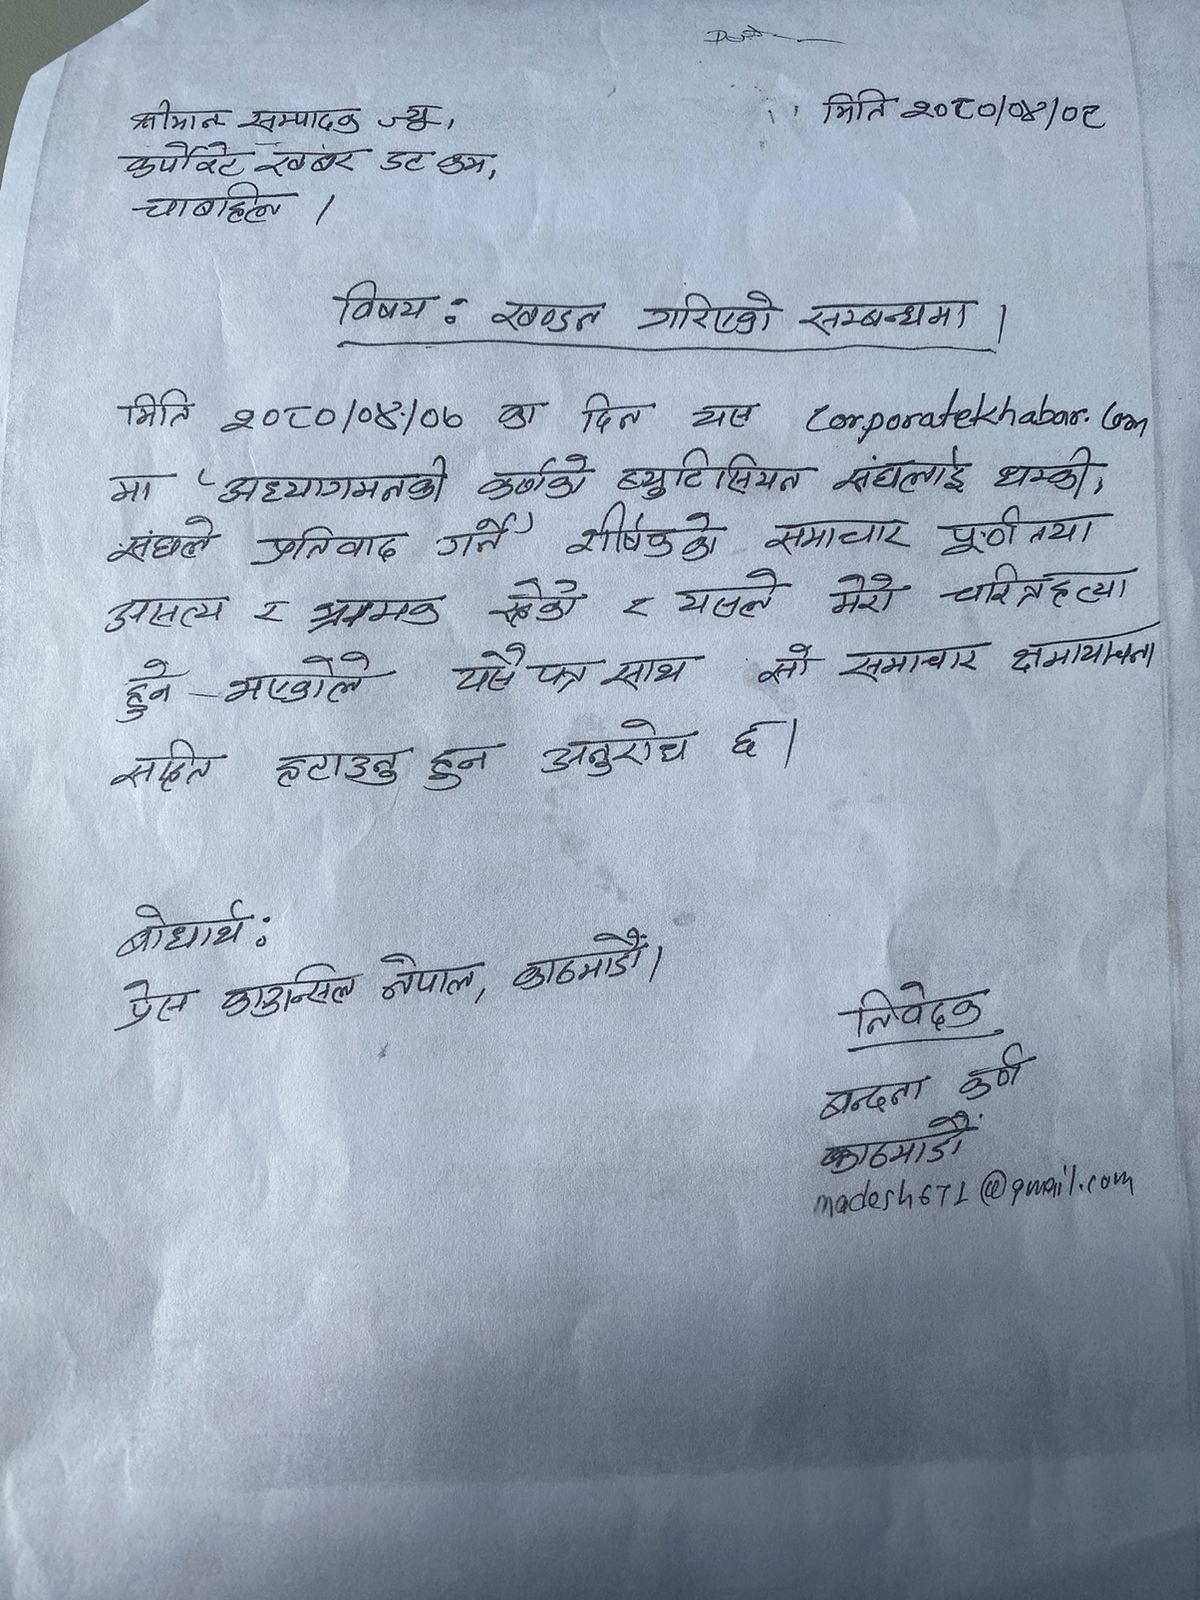 मिति २०८०/०४/०८
श्रीमान सम्पादक ज्यू,
कर्पोरेट खबर डट कम,
चाबहिल ।
विषय: खण्डन गरिएको सम्बन्धमा ।
मिति २०८०/०४/०७ का दिन यस Corporatekhabar.Com
मा 'अध्यागमनकी कर्णको ब्युटिसियन संघलाई धम्की,
संघले प्रतिवाद गर्ने' शीर्षकको समाचार पूर्णतया
असत्य र भ्रामक रहेको र यसले मेरो चरित्रहत्या
हुने भएकोले यसै पत्र साथ सो समाचार क्षमायाचना
सहित हटाउनु हुन अनुरोध छ ।
बोधार्थ:
प्रेस काउन्सिल नेपाल, काठमाडौं ।
निवेदक
बन्दना कर्ण
काठमाडौं
madesh671@gmail.com